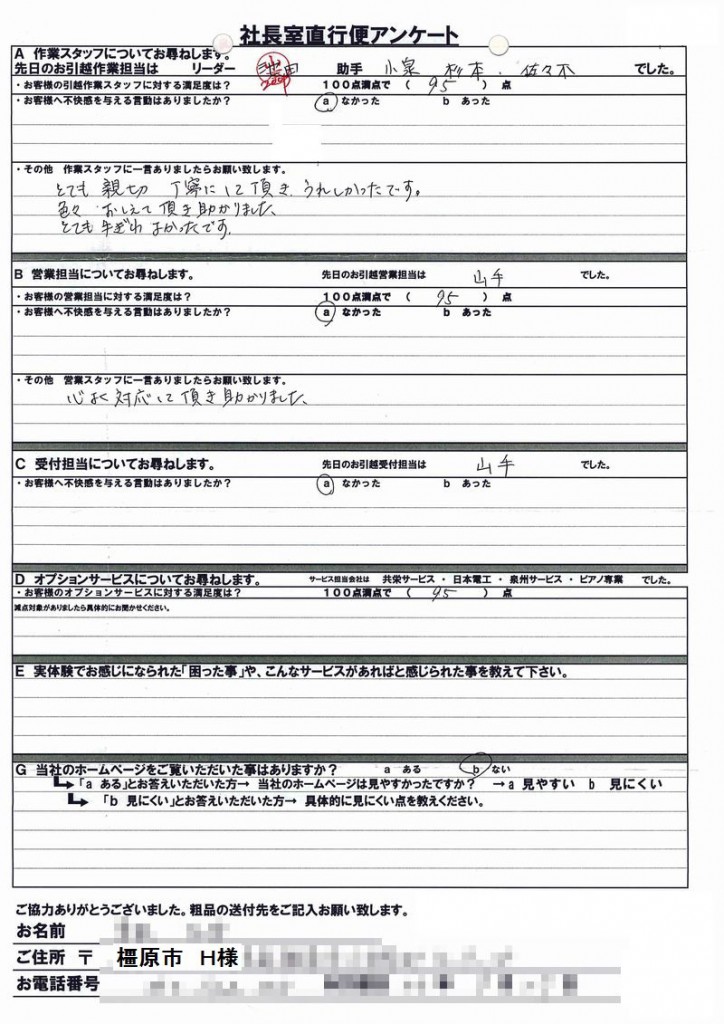 社長室直行便アンケート
A 作業スタッフについてお尋ねします。
先日のお引越作業担当は リーダー 田 助手 小泉 杉本 ・ 佐々木 でした。
・お客様の引越作業スタッフに対する満足度は? 100点満点で ( 95 ) 点
・お客様へ不快感を与える言動はありましたか? a なかった b あった
・その他 作業スタッフに一言ありましたらお願い致します。
とても 親切 丁寧にして頂き うれしかったです。
色々 おしえて頂き助かりました、
とても手ぎわ よかったです.
B 営業担当についてお尋ねします。 先日のお引越営業担当は 山手 でした。
・お客様の営業担当に対する満足度は? 100点満点で ( 95 ) 点
・お客様へ不快感を与える言動はありましたか? a なかった b あった
・その他 営業スタッフに一言ありましたらお願い致します。
心よく対応して頂き助かりました、
C 受付担当についてお尋ねします。 先日のお引越受付担当は 山手 でした。
・お客様へ不快感を与える言動はありましたか? a なかった b あった
D オプションサービスについてお尋ねします。 サービス担当会社は 共栄サービス ・ 日本電工 ・ 泉州サービス ・ ピアノ専業 でした。
・お客様のオプションサービスに対する満足度は? 100点満点で ( 95 ) 点
減点対象がありましたら具体的にお聞かせください。
E 実体験でお感じになられた「困った事」や、こんなサービスがあればと感じられた事を教えて下さい。
G 当社のホームページをご覧いただいた事はありますか? a ある b ない
「a ある」とお答えいただいた方→ 当社のホームページは見やすかったですか? →a 見やすい b 見にくい
「b 見にくい」とお答えいただいた方→ 具体的に見にくい点を教えください。
ご協力ありがとうございました。粗品の送付先をご記入お願い致します。
お名前
ご住所 〒 橿原市 H様
お電話番号